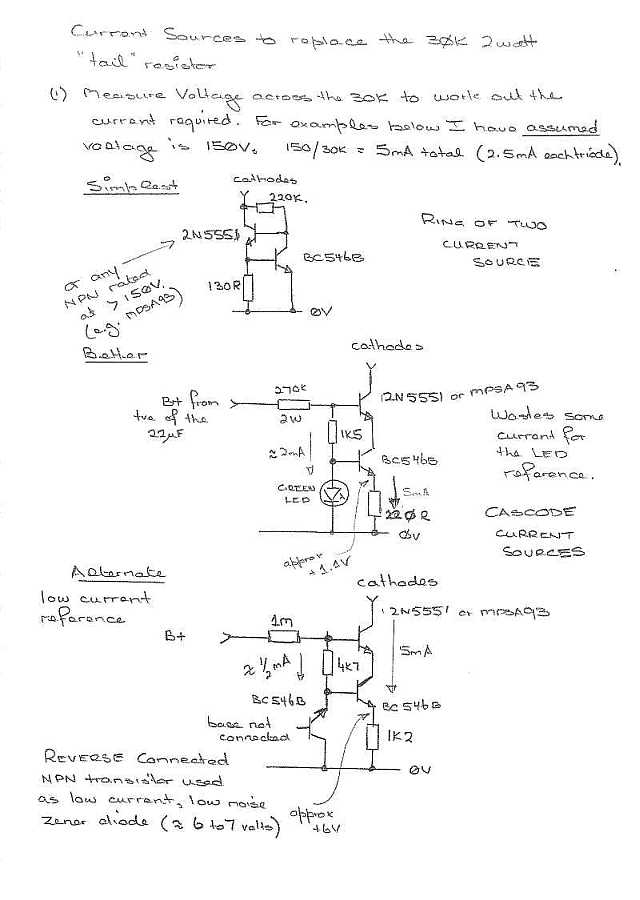 Current Sources to replace the 30K 2watt
"tail" resistor
(1) Measure Voltage across the 30K to work out the
current required. For examples below I have assumed
voltage is 150V. 150/30K = 5mA total (2.5mA each triode).
Simplest
cathodes
220K.
2N5551
BC546B
130R
0V
or any
NPN rated
at > 150V.
(e.g. MPSA93)
RING OF TWO
CURRENT
SOURCE
Better
cathodes
B+ from
+ve of the
22µF
270K
2W
2N5551 or MPSA93
1K5
≈ 2mA
BC546B
GREEN
LED
5mA
220R
0V
approx
+1.4V
Wastes some
current for
the LED
reference.
CASCODE
CURRENT
SOURCES
Alternate
low current
reference
cathodes
B+
1m
2N5551 or MPSA93
≈ 1/2 mA
4K7
5mA
BC546B
BC546B
base not
connected
1K2
0V
approx
+6V
REVERSE Connected
NPN transistor used
as low current, low noise
zener diode (≈ 6 to 7 volts)